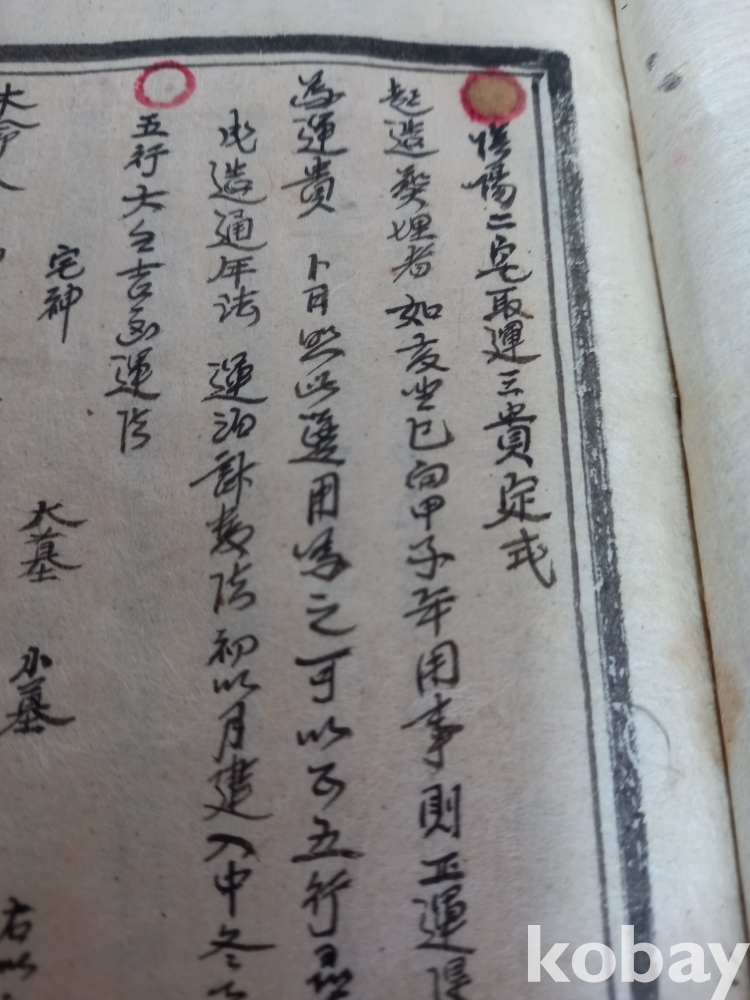 陰陽二宅取運三貴定式
起造葬埋者 如亥坐巳向甲子年用事則正運
為運貴 卜日照此選用為之可以 五行
造通年法 運泊計數法初以月建入中冬
五行大小吉凶運法
宅神 大墓 小墓
大命人
右以
kobay